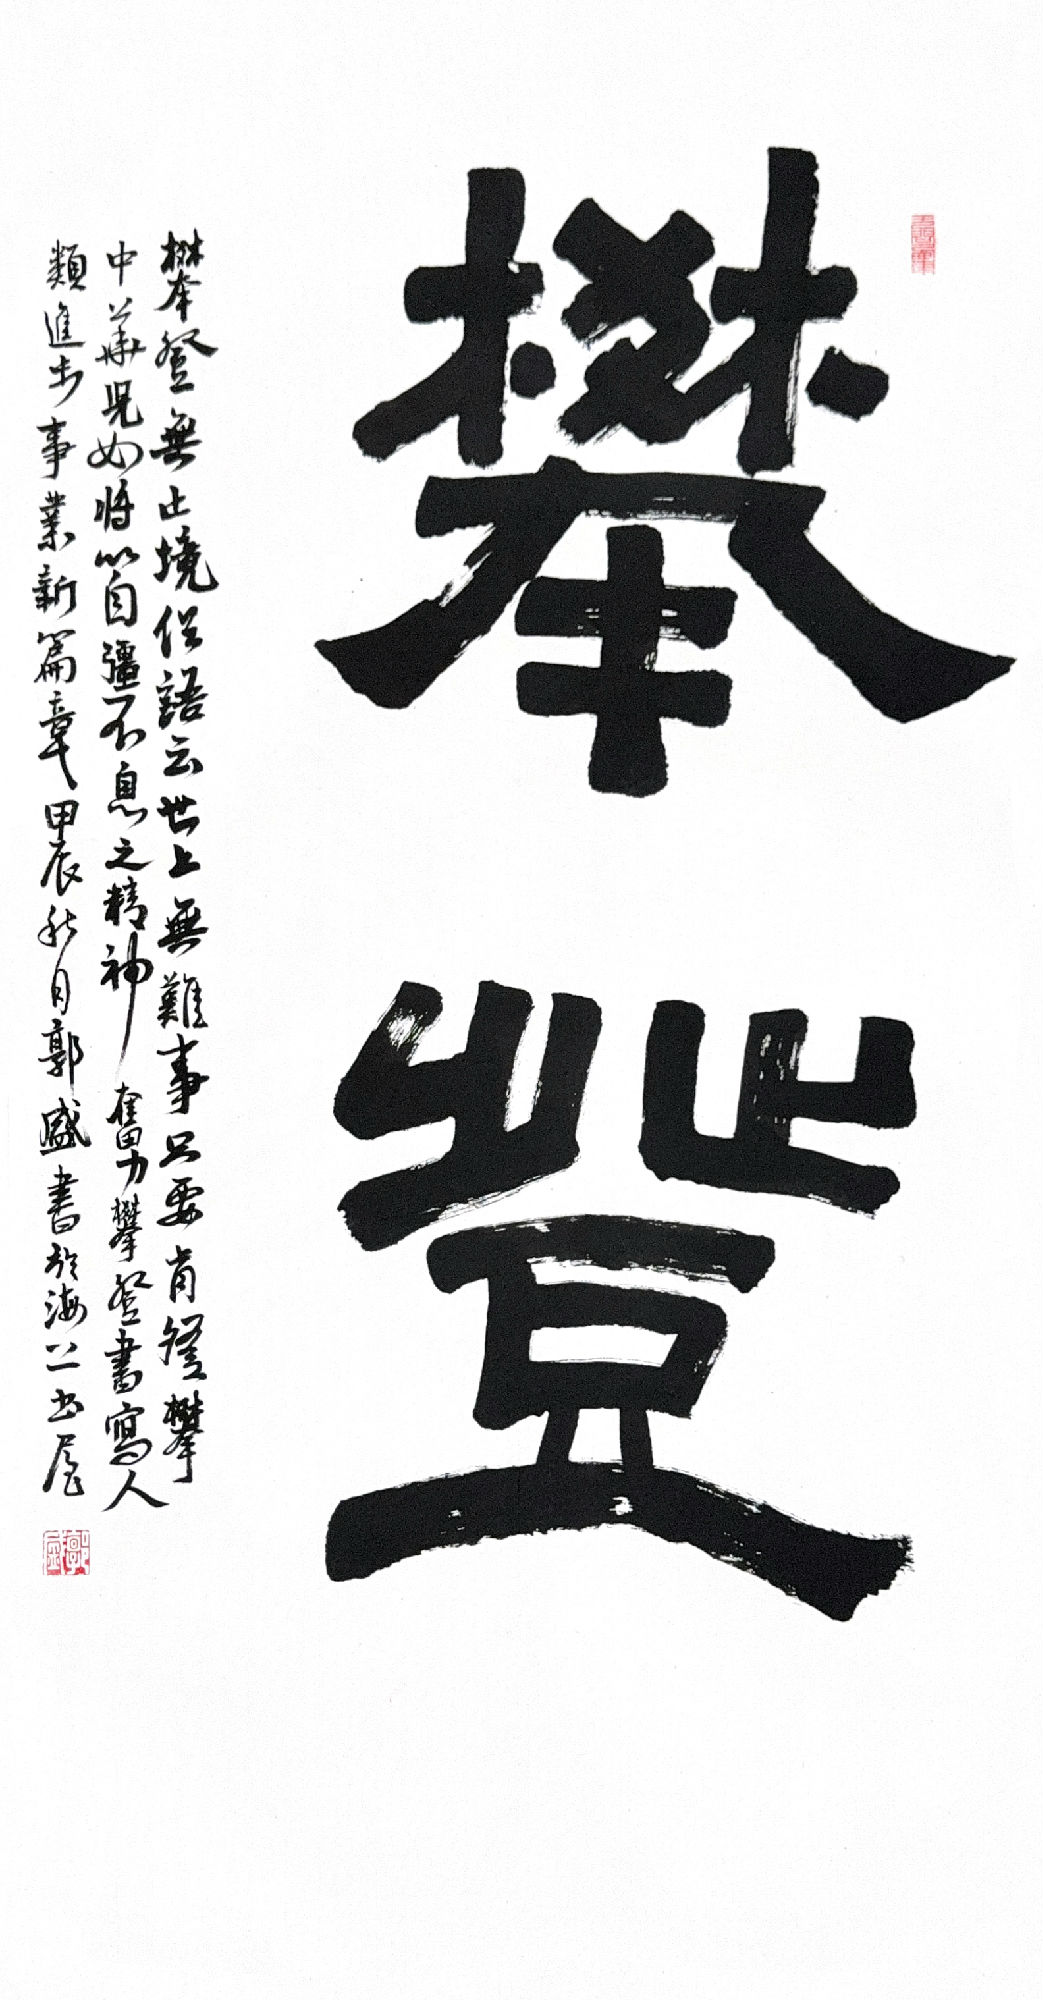 攀登
攀登無止境俗語云世上無難事只要肯登攀
中華兒女將以自彊不息之精神奮力攀登書寫人
類進步事業新篇章甲辰秋月郭盛書於海上書屋
郭盛